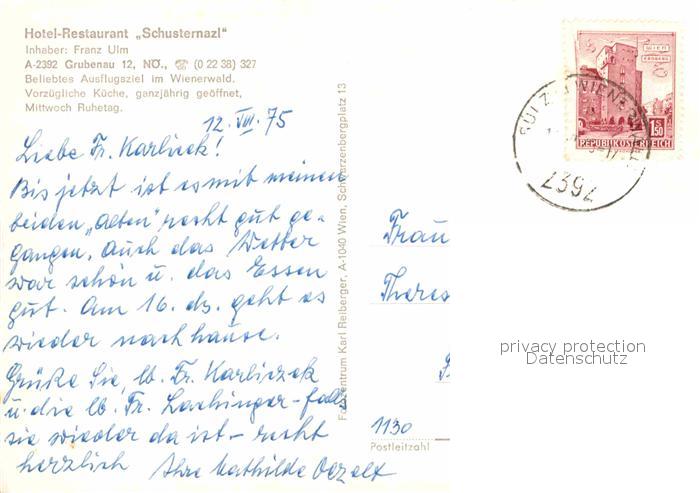 Hotel-Restaurant „Schusternazl"
Inhaber: Franz Ulm
A-2392 Grubenau 12, NÖ., ☎ (0 22 38) 327
Beliebtes Ausflugsziel im Wienerwald.
Vorzügliche Küche, ganzjährig geöffnet,
Mittwoch Ruhetag.
12. VIII. 75
Liebe Fr. Karliczek!
Bis jetzt ist es mit meinen
beiden „Alten" recht gut ge-
gangen. Auch das Wetter
war schön u. das Essen
gut. Am 16. ds. geht es
wieder nachhause.
Grüße Sie, lb. Fr. Karliczek
u. die lb. Fr. Lachinger - falls
sie wieder da ist - recht
herzlich Ihre Mathilde
Fotozentrum Karl Reiberger, A-1040 Wien, Schwarzenbergplatz 13
WIEN
ERDBERG
1 S 50
REPUBLIK ÖSTERREICH
SULZ IM WIENERWALD
2392
Frau
Theres
1130
Postleitzahl
privacy protection
Datenschutz